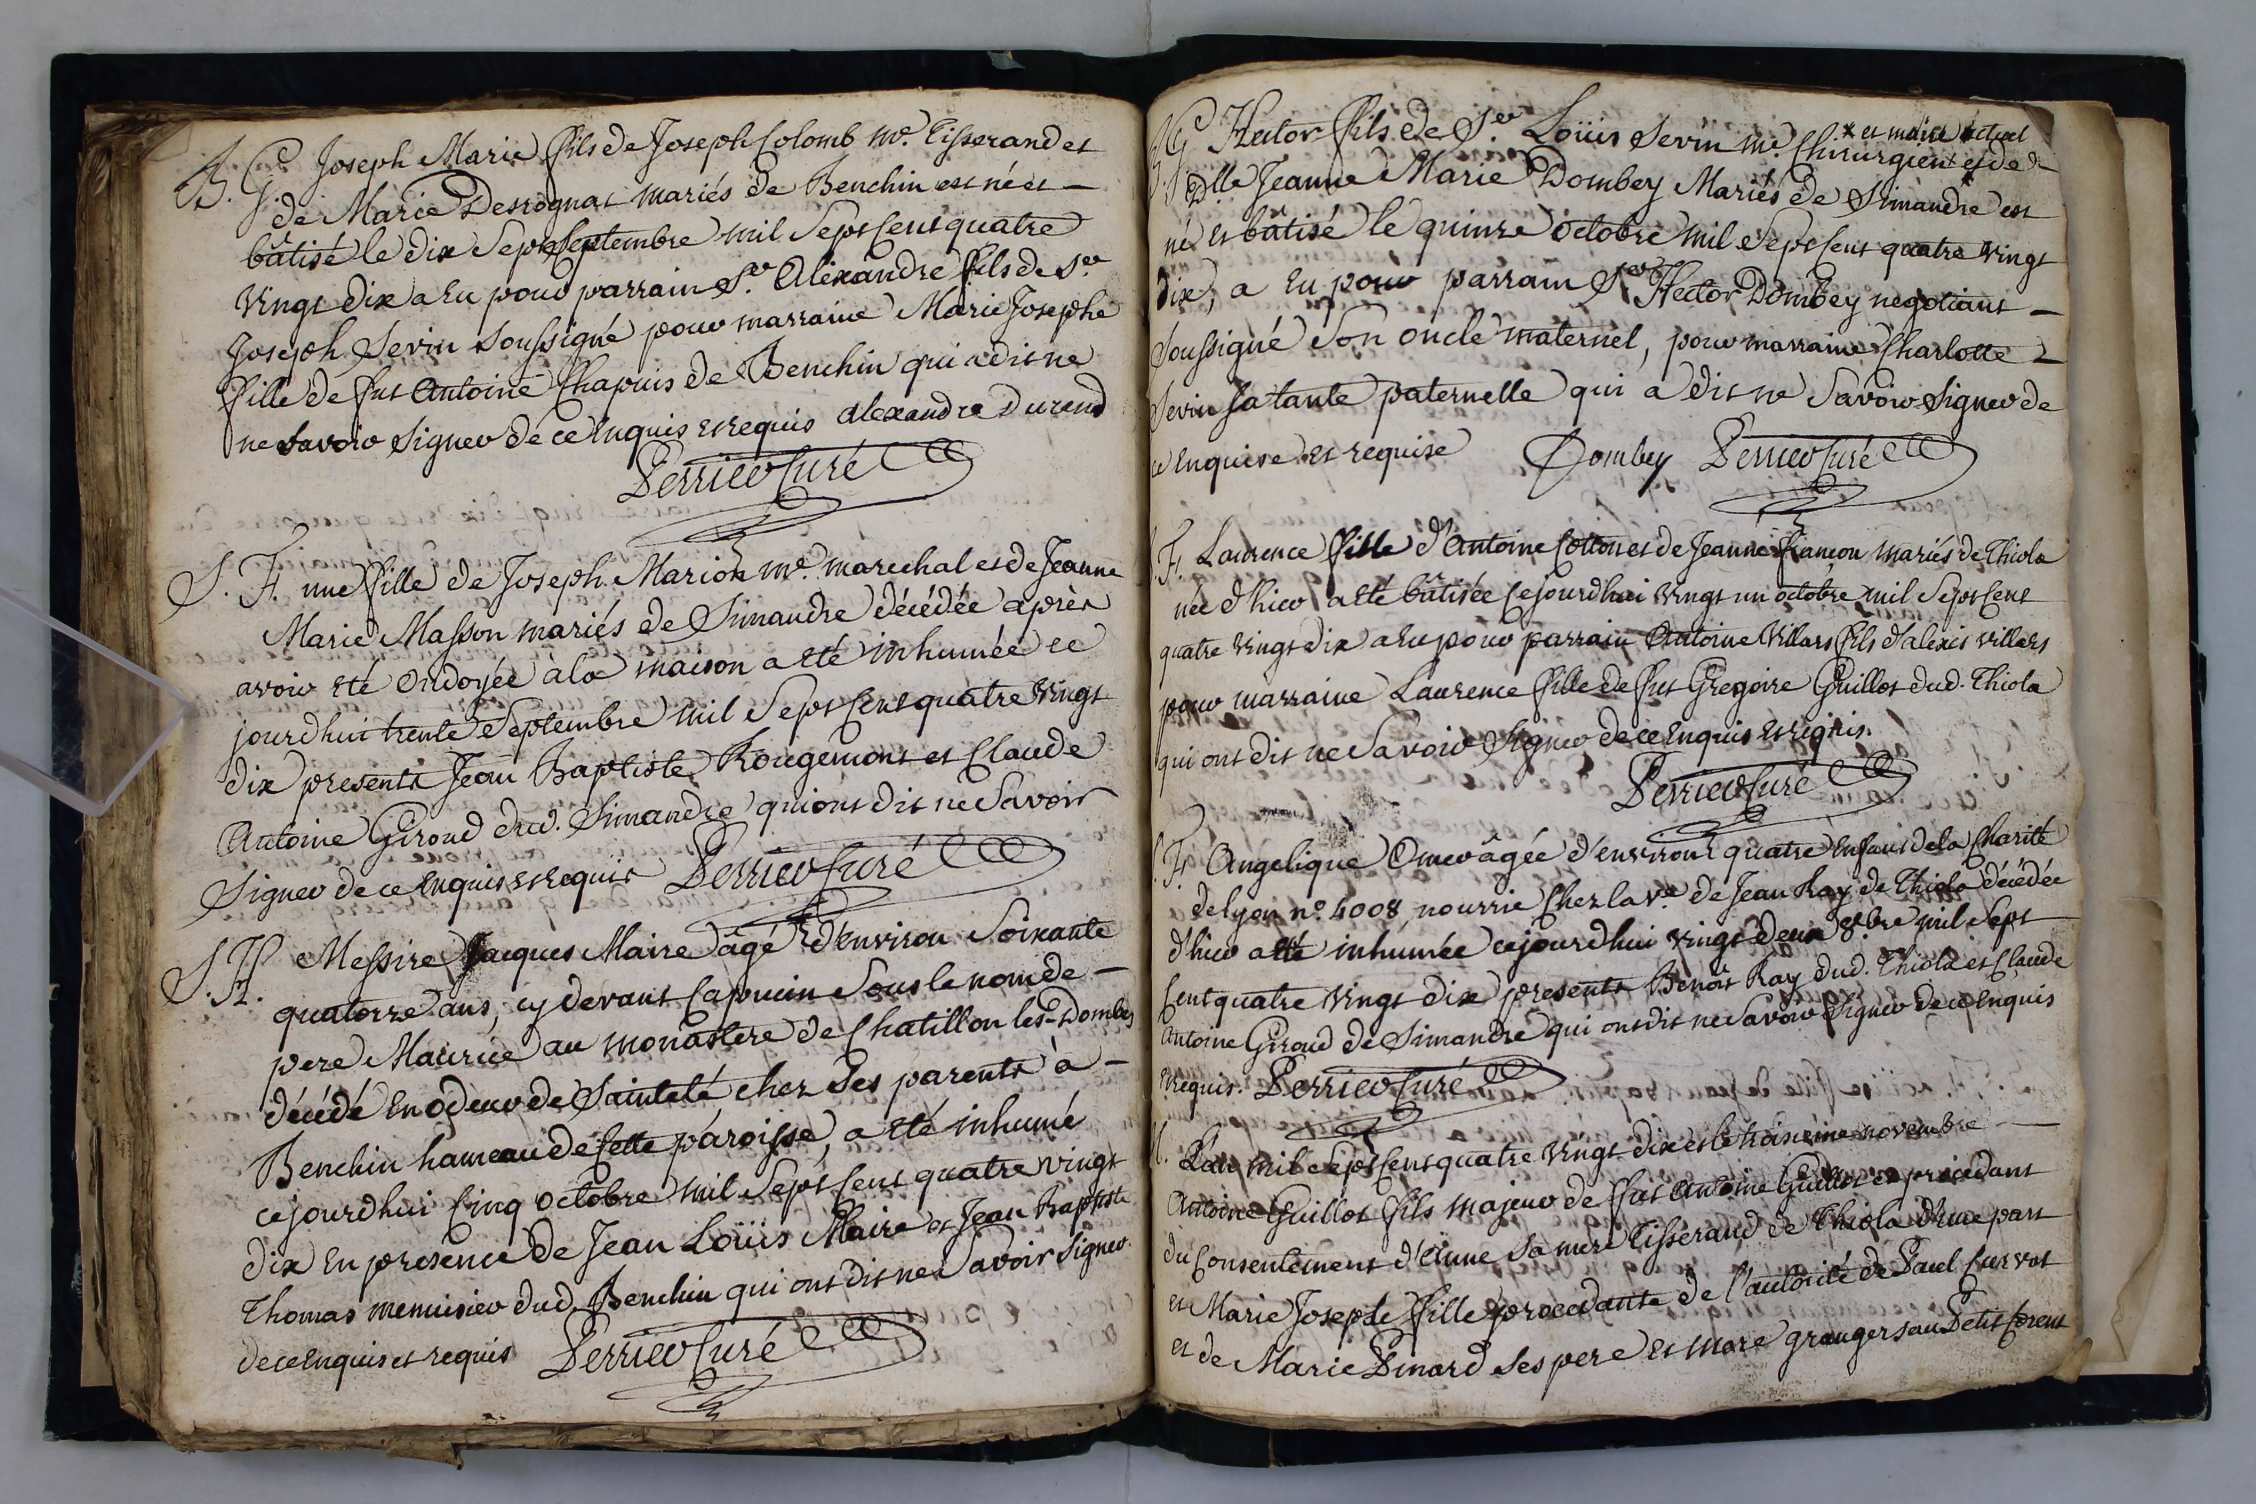 B. G. Joseph Marie fils de Joseph Colomb me. Tisserand et
de Marie Desrognat mariés de Benchin est né et —
bâtisé le dix Sept Septembre mil Sept Cent quatre
Vingt dix a Eu pour parrain Sr. Alexandre fils de Sr
Joseph Sevin Soussigné pour marraine Marie Josephe
fille de fut Antoine Chapuis de Benchin qui a dit ne
ne Savoir Signer de ce Enquis et requis alexandre Durend
Perrier Curé
S. F. une fille de Joseph Marion me. marechal et de Jeanne
Marie Masson mariés de Simandre décédée après
avoir été Ondoyée à la maison a eté inhumée ce
jourdhui trente Septembre mil Sept Cent quatre Vingt
dix presents Jean Baptiste Rougemont et Claude
Antoine Giroud dud. Simandre qui ont dit ne Savoir
Signer de ce Enquis et requis Perrier Curé
S. H. Messire Jacques Maire âgé d'Environ Soixante
quatorze ans, cy devant Capucin Sous le nom de —
pere Maurice au monastere de Chatillon les-Dombes
décédé En odeur de Sainteté chez Ses parents à —
Benchin hameau de Cette paroisse, a eté inhumé
cejourdhui Cinq Octobre mil Sept Cent quatre vingt
dix En presence de Jean Loüis Maire et Jean Baptiste
Thomas menuisier dud. Benchin qui ont dit ne Savoir Signer
de ce Enquis et requis Perrier Curé
x et maire actuel
B. G. Hector fils de Sr. Loüis Sevin me. Chirurgien x et de
Dlle Jeanne Marie Dombey Mariés de Simandre est
né et bâtisé le quinze Octobre mil Sept Cent quatre Vingt
dix, a Eu pour parrain Sr Hector Dombey negotiant —
Soussigné Son oncle maternel, pour marraine Charlotte —
Sevin Sa tante paternelle qui a dit ne Savoir Signer de
ce enquise et requise Dombey Perrier Curé
B. F. Laurence fille d'Antoine Cotton et de Jeanne fiançon mariés de Thiola
née d'hier a eté bâtisée Cejourdhui Vingt un octobre mil Sept Cent
quatre Vingt dix a Eu pour parrain Antoine Villars fils d'alexis villars
pour marraine Laurence fille de fut Gregoire Guillot dud. Thiola
qui ont dit ne Savoir Signer de ce Enquis et requis.
Perrier Curé
S. F. Angelique Omer âgée d'environ quatre Enfant de la Charité
de lyon no. 4008 nourrie Chez la ve de Jean Ray de Thiola décédée
d'hier a eté inhumée cejourdhui Vingt deux 8bre mil Sept
Cent quatre Vingt dix presents Benoit Ray dud. Thiola et Claude
Antoine Giroud de Simandre qui ont dit ne Savoir Signer de ce Enquis
et requis. Perrier Curé
M. L'an mil Sept Cent quatre Vingt dix et le troisieme novembre —
Antoine Guillot fils majeur de fut Antoine Guillot et procédant
du Consentement d'Anne Sa mere Tisserand de Thiola d'une part
et Marie Josephe fille procedante de l'autorité de Paul Curvot
et de Marie Pinard Ses pere et mere grangers au Petit Corent